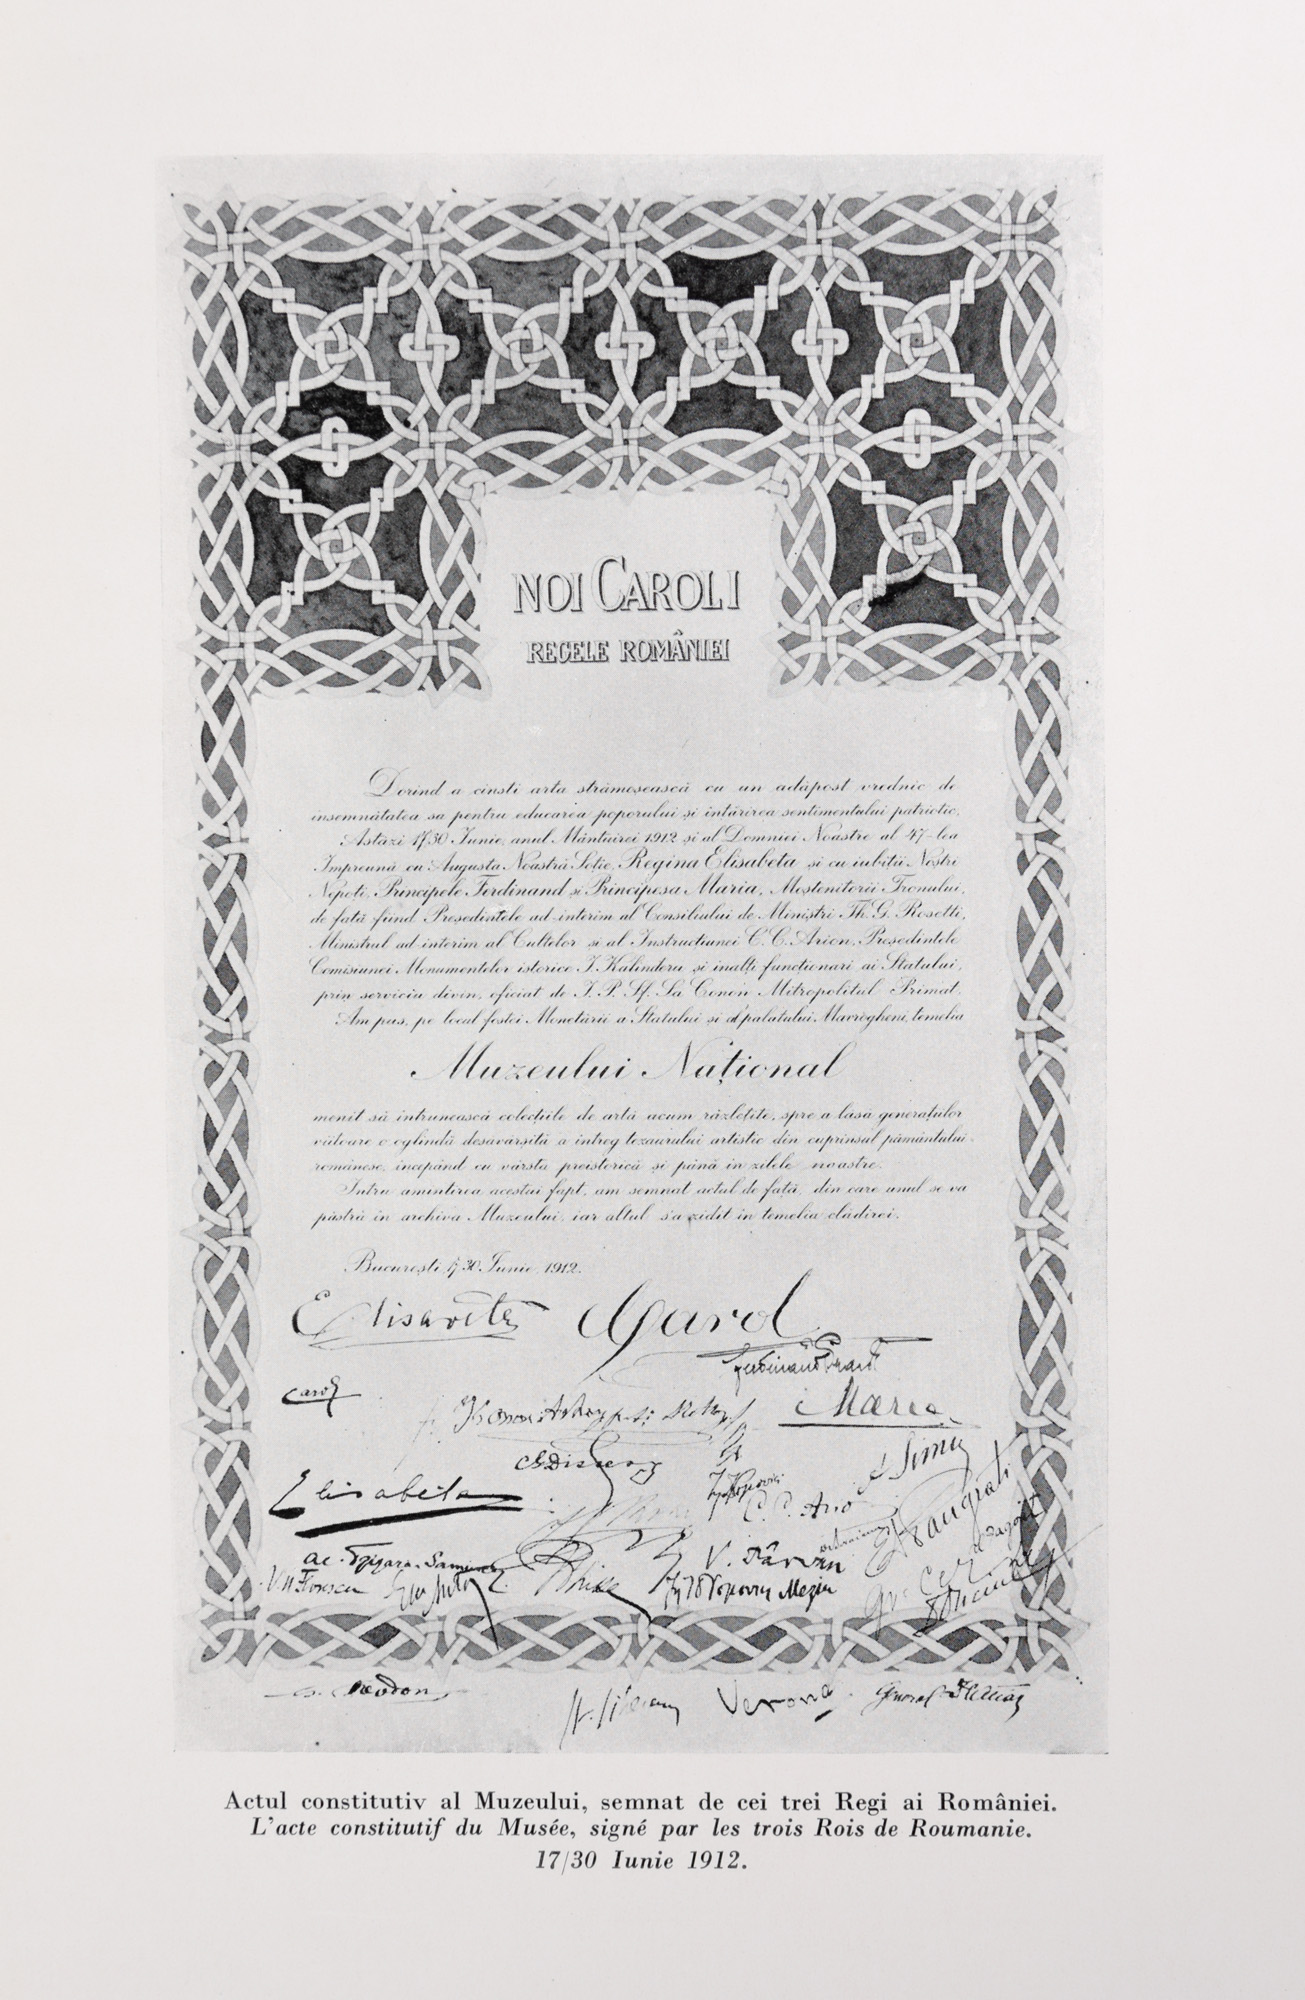 NOI CAROL I
REGELE ROMÂNIEI
Dorind a cinsti arta strămoșească cu un adăpost vrednic de
însemnătatea sa pentru educarea poporului și întărirea sentimentului patriotic,
Astăzi 17/30 Iunie, anul Mântuirei 1912 și al Domniei Noastre al 47-lea
Împreună cu Augusta Noastră Soție, Regina Elisabeta și cu iubiții Noștri
Nepoți, Principele Ferdinand și Principesa Maria, Moștenitorii Tronului,
de față fiind Președintele ad-interim al Consiliului de Miniștri Th. G. Rosetti,
Ministrul ad-interim al Cultelor și al Instrucțiunei C. C. Arion, Președintele
Comisiunei Monumentelor istorice I. Kalinderu și înalți funcționari ai Statului,
prin serviciu divin, oficiat de I. P. Sf. Sa Conon Mitropolitul Primat,
Am pus, pe locul fostei Monetării a Statului și al palatului Mavrogheni, temelia
Muzeului Național
menit să întrunească colecțiile de artă acum răzlețite, spre a lăsa generațiilor
viitoare o oglindă desăvârșită a întreg tezaurului artistic din cuprinsul pământului
românesc, începând cu vârsta preistorică și până în zilele noastre.
Întru amintirea acestui fapt, am semnat actul de față, din care unul se va
păstra în archiva Muzeului, iar altul s'a zidit în temelia clădirei.
București, 17/30 Iunie, 1912.
Elisaveta Carol
Ferdinand
Carol Maria
Elisabeta
C. C. Arion
V. Pârvan
Al. Tzigara-Samurcaș
V. N. Florescu
Verona General
Actul constitutiv al Muzeului, semnat de cei trei Regi ai României.
L'acte constitutif du Musée, signé par les trois Rois de Roumanie.
17/30 Iunie 1912.